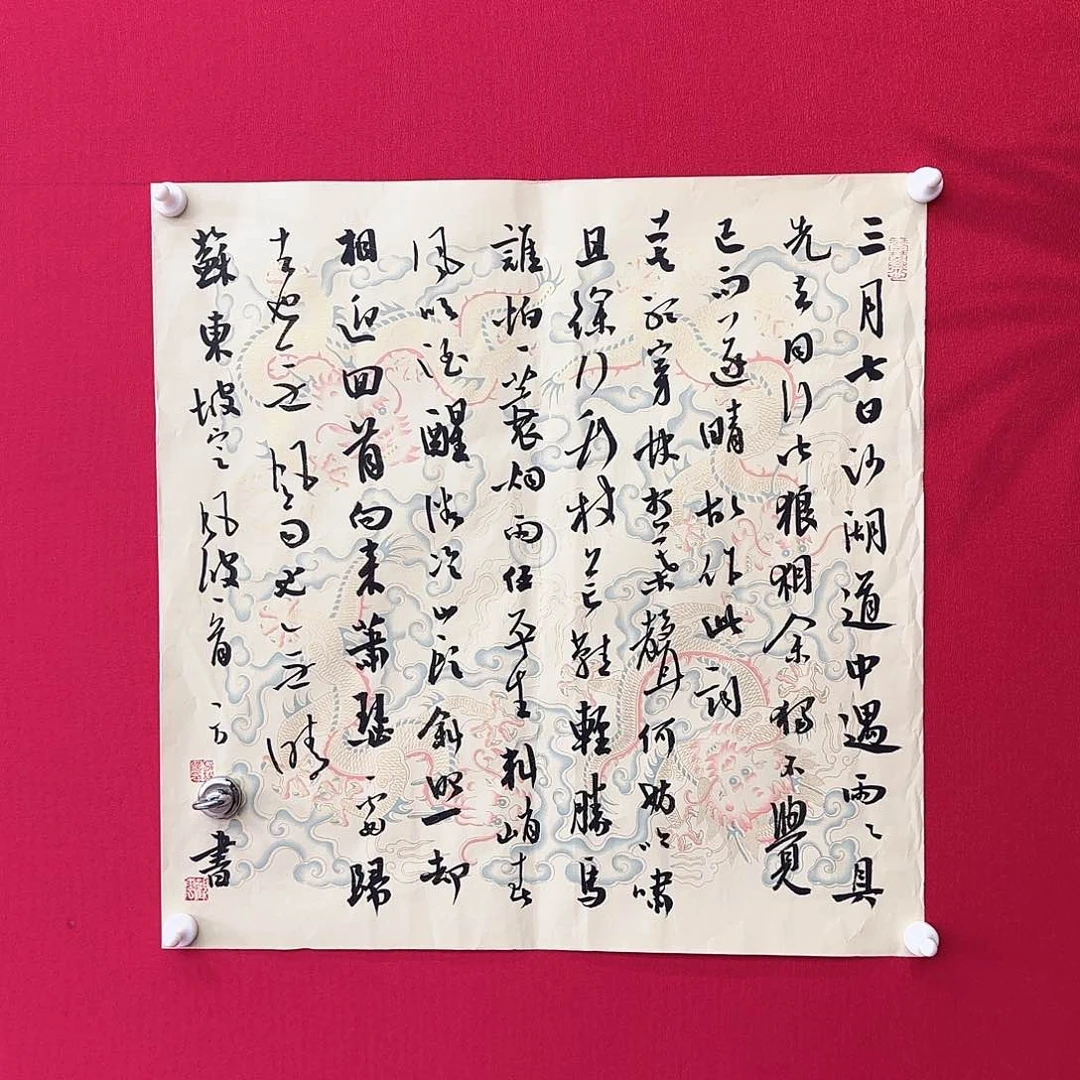 三月七日沙湖道中遇雨〻具
先去同行皆狼狽余獨不覺
已而遂晴故作此詞
莫聽穿林打葉聲何妨吟嘯
且徐行竹杖芒鞋輕勝馬
誰怕一蓑烟雨任平生料峭春
風吹酒醒微冷山頭斜照却
相迎回首向來蕭瑟處歸
去也無風雨也無晴
蘇東坡定風波一首 書